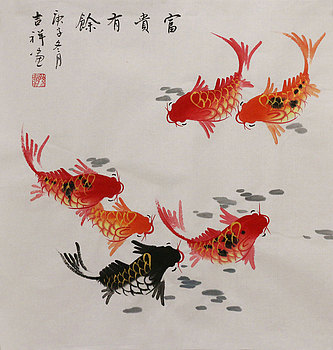 富貴有餘
庚子冬月
吉祥畫